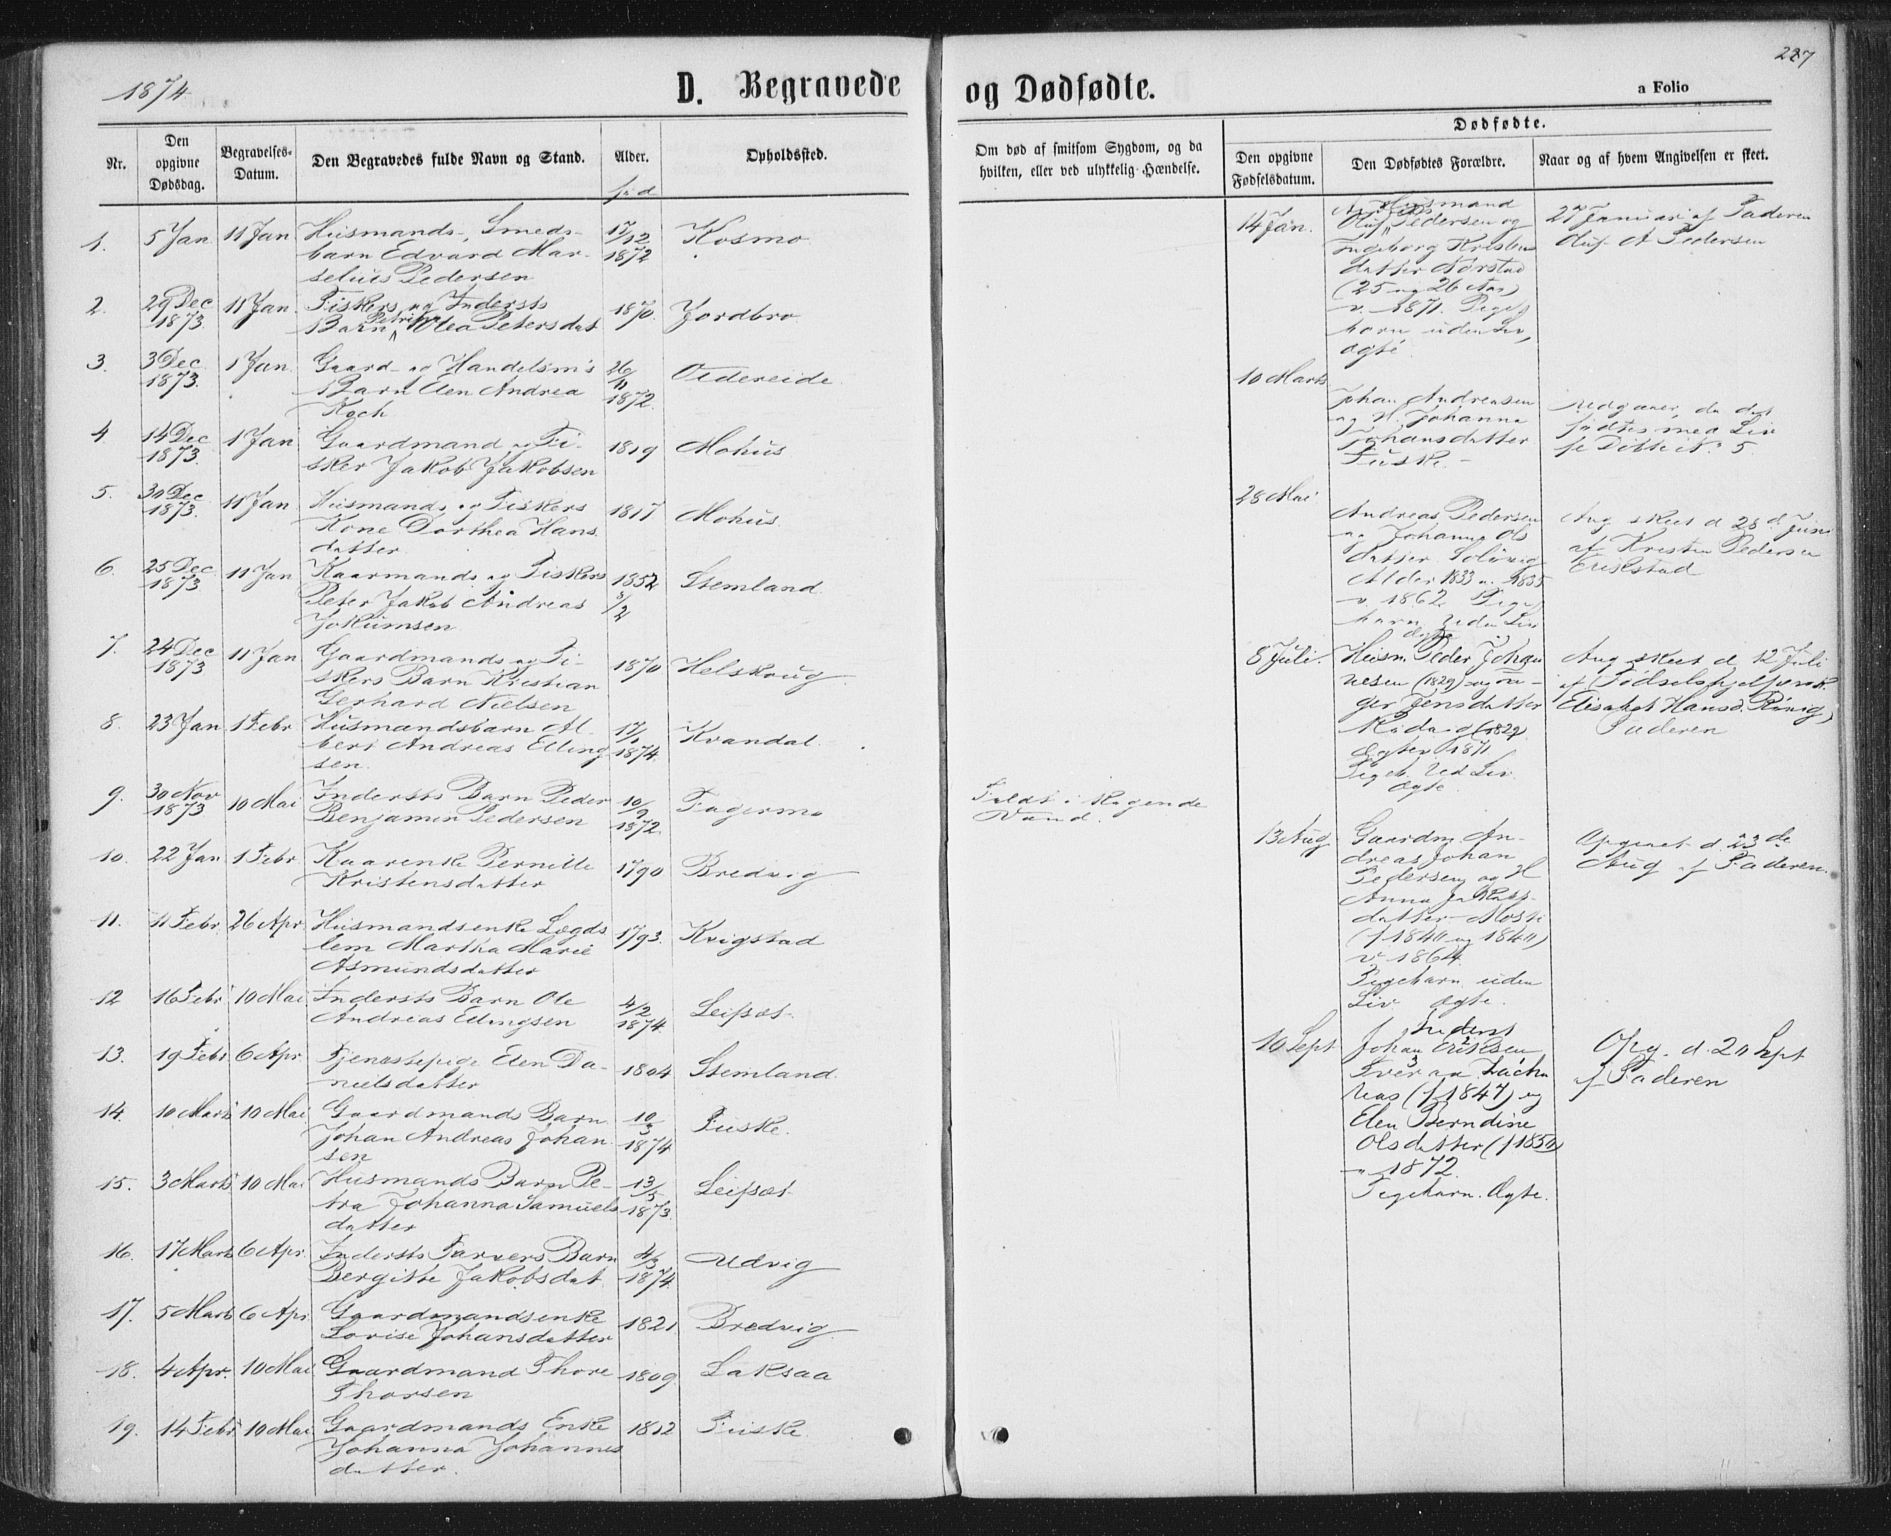 1874
D. Begravede
Nr.
Den opgivne Dødsdag.
Begravelses-Datum.
Den Begravedes fulde Navn og Stand.
Alder.
Opholdssted.
1. 5 Jan 11 Jan Husmands-, Smeds- 17/12 Kosmo
barn Edvard Mar- 1872
selius Pedersen
2. 29 Dec 11 Jan Fiskers og Inderste 1870 Jordbro
1873 Barn Petrine Olea Petersdat
3. 3 Dec 1 Jan Gaard- og Handelsm's 26/11 Oldereide
1873. Barn Elen Andrea 1872.
Koch
4 14 Dec 1 Jan Gaardmand og Fi- 1819 Mohus
1873. sker Jakob Jakobsen
5. 30 Dec 11 Jan Husmands og Fiskers 1817 Mohus
1873. Kone Dorthea Hans
datter
6. 25 Dec 11 Jan Kaarmands og Fiskers 1852 Stemland
1873 Peter Jakob Andreas 8/2
Jokumsen
7. 24 Dec 11 Jan Gaardmands og Fi- 1870 Helskoug
1873 skers Barn Kristian
Gerhard Nielsen
8. 23 Jan 1 Febr Husmandsbarn Al- 17/1 Kvandal
bert Andreas Elling 1874
sen.
9. 30 Nov 10 Mai Indersts Barn Peder 10/9 Fagermo
1873 Benjamin Pedersen 1872.
10. 22 Jan 1 Febr Kaarenke Pernille 1790 Bredvig
Kristensdatter
11. 11 Febr. 26 Apr Husmandsenke Lægds 1793. Kvigstad
lem Martha Marie
Asmundsdatter
12 16 Febr 10 Mai Indersts Barn Ole 4/2 Leifset
Andreas Ellingsen 1874.
13. 19 Febr 6 Apr Tjenestepige Elen Da- 1804 Stemland.
nielsdatter
14. 10 Marts 10 Mai Gaardmands Barn 10/3 Fuske.
Johan Andreas Johan 1874
sen
15. 3 Marts 10 Mai Husmands Barn Pe- 13/5 Leifset
tra Johanna Samuels 1873.
datter
16. 17 Marts 6 Apr. Indersts Farvers Barn 4/3 Udvig
Bergitte Jakobsdat 1874.
17. 5 Marts 6 Apr Gaardmandsenke 1821 Bredvig
Lovise Johansdatter
18. 4 Apr. 10 Mai Gaardmand Thore 1809 Laksaa
Thorsen
19. 14 Febr 10 Mai Gaardmands Enke 1812 Fuske
Johanna Johannes
datter.
og Dødfødte.
a Folio
227
Om død af smitsom Sygdom, og da hvilken, eller ved ulykkelig Hændelse.
Dødfødte.
Den opgivne Fødselsdatum.
Den Dødfødtes Forældre.
Naar og af hvem Angivelsen er skeet.
Faldt i kogende
Vand.
14 Jan. Husmand
Oluf Pedersen og
Ingeborg Kristens
datter Nørstad
(25 og 26 Aar)
v. 1871. Pige
barn uden Liv,
ægte.
27 Januar af Faderen
Oluf A Pedersen
10 Marts
Johan Andreasen
og H. Johanna
Johansdatter
Fuske
Udgaaer, da det
fødtes med Liv
se Døde No. 5.
28 Mai
Andreas Pedersen
og Johanna Ols
datter Solvig
Alder 1833 og 1835
v. 1862 Pige
barn uden Liv
ægte
Ang skeet d 28d Juni
af Kristen Pedersen
Erikstad
8 Juli. Husm. Peder Johan
nesen (1829) og In-
ger Jensdatter
(1829)
1871
Pigeb. ud Liv
ægte.
Ang skeet d. 12 Juli
af Fødselshjelpersk.
Elisabet Hansd. Røvig,
Faderen
13 Aug Gaardm An-
dreas Johan
Pedersen og H
Anna Jakobs
datter Mosti
(f 1840 og 1840)
v. 1864.
Pigebarn uden
Liv ægte.
Opgivet d. 23de
Aug af Faderen.
10 Sept Inderst
Johan Eriksen
(f 1847) og
Elen Berndine
Olsdatter (f 1850)
v. 1872.
Pigebarn. Ægte.
Opg. d. 20 Sept
af Faderen